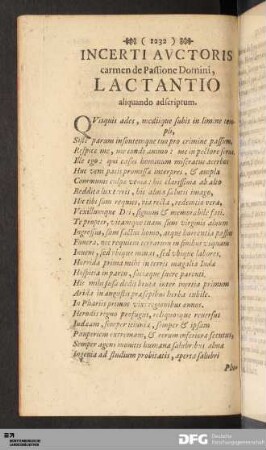 ( 1232 )
INCERTI AVCTORIS
carmen de Passione Domini,
LACTANTIO
aliquando adscriptum.
QVisquis ades, mediique subis in limine tem-
plo,
Siste parum insontemque tuo pro crimine passum,
Respice me, me conde animo: me in pectore serva.
Ille ego: qui casus hominum miseratus acerbos
Huc veni pacis promissæ interpres, & ampla
Communis culpæ venia: hic clarissima ab alto
Reddita lux terris, hic alma salutis imago,
Hic tibi sum requies, via recta, redemtio vera,
Vexillumque Dei, signum & memorabile fati.
Te propter, vitamque tuam sum virginis alvum
Ingressus, sum factus homo, atque horrentia passus
Funera. nec requiem terrarum in finibus usquam
Inveni, sed ubique minas, sed ubique labores,
Horrida prima mihi in terris magalia Judæ
Hospitia in partu, sociæque fuere parenti.
Hic mihi fusa dedit bruta inter inertia primum
Arida in angustis præsepibus herba cubile.
In Phariis primos vixi regionibus annos.
Herodis regno profugus, reliquosque reversus
Judæam, semper jejunia, semper & ipsam
Pauperiem extremam, & rerum inferiora secutus,
Semper agens monitis humana salubribus alma
Ingenia ad studium probitatis, aperta salubri
DFG Deutsche
Forschungsgemeinschaft